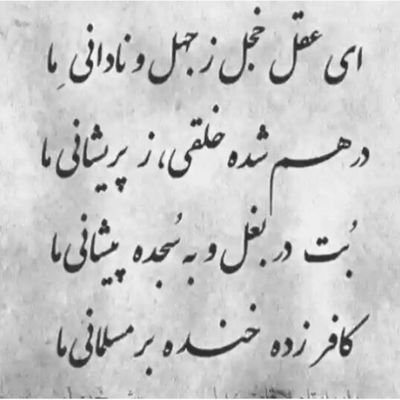 ای عقل خجل ز جهل و نادانیِ ما
درهم شده خلقی، ز پریشانی ما
بُت در بغل و به سُجده پیشانی ما
کافر زده خنده بر مسلمانی ما